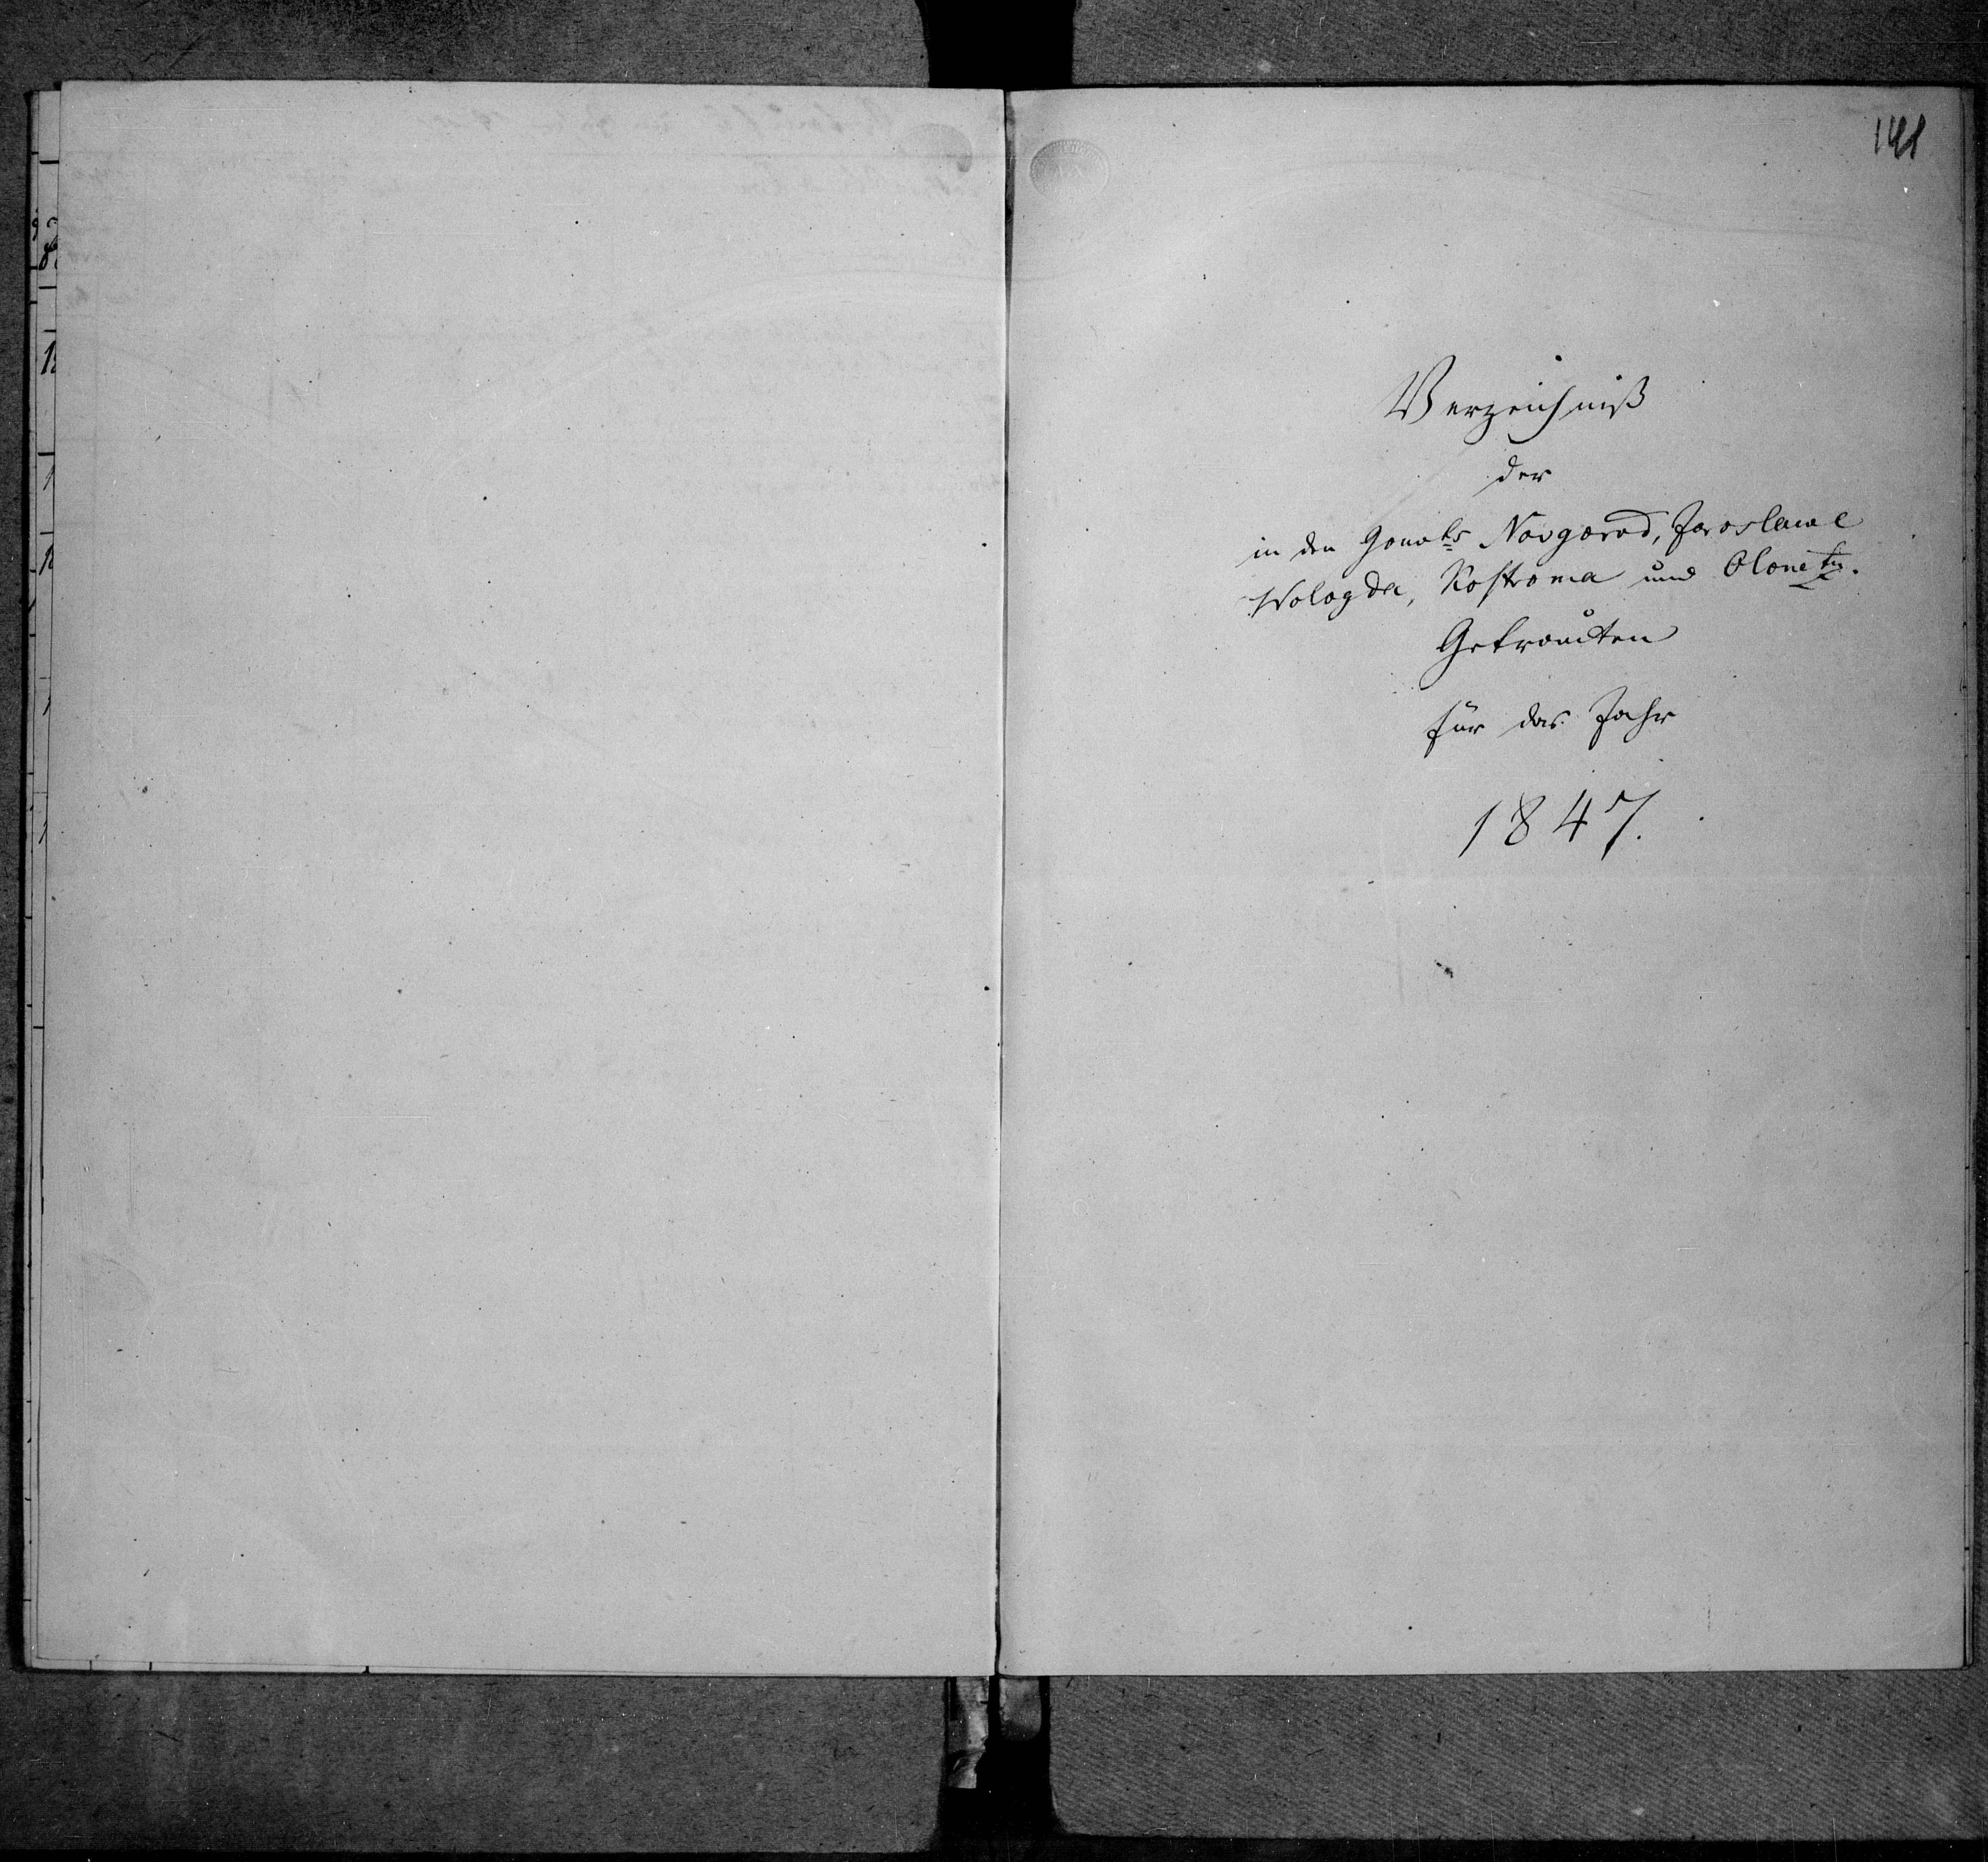 141
Verzeichniß
der
in den Gouvts Novgorod, Jaroslawl
Wologda, Kostroma und Olonetz.
Getrauten
für das Jahr
1847.